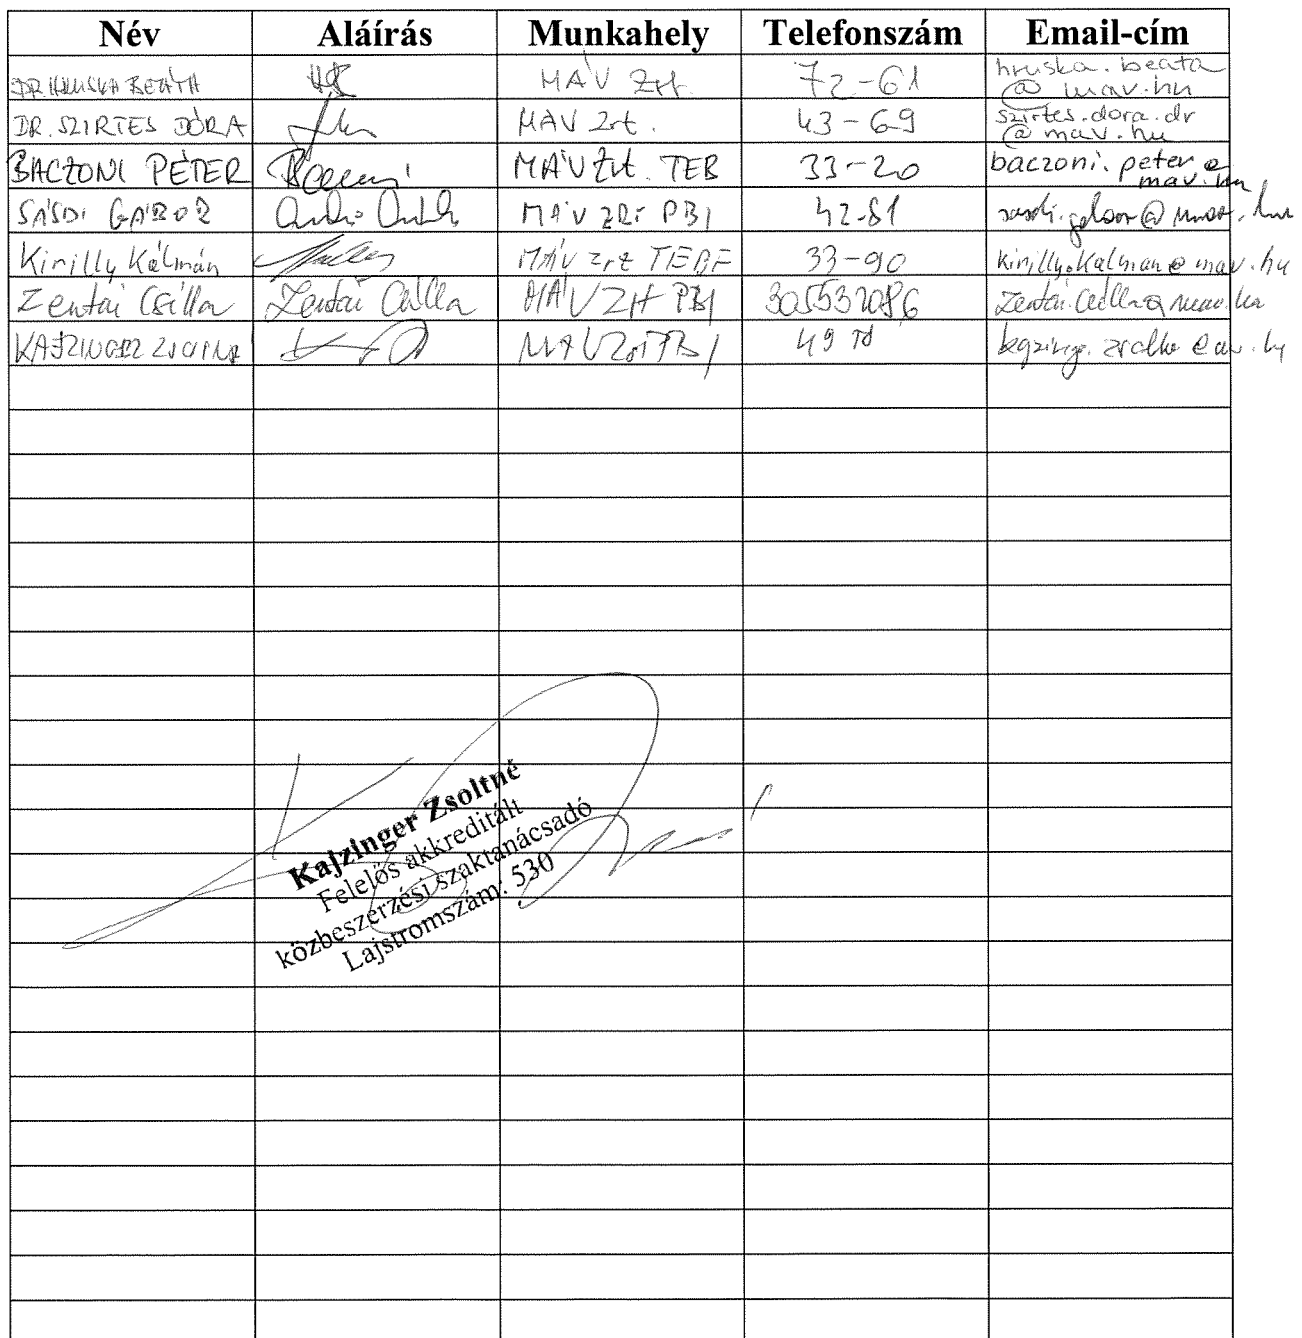 Név Aláírás Munkahely Telefonszám Email-cím
DR. HRUSKA BEÁTA MÁV Zrt. 72-61 hruska.beata
@mav.hu
DR. SZIRTES DÓRA MÁV Zrt. 43-69 szirtes.dora.dr
@mav.hu
BACZONI PÉTER MÁV Zrt. TEB 33-20 baczoni.peter@
mav.hu
SÁSDI GÁBOR MÁV ZRT PBI 42-81 sasdi.gabor@mav.hu
Kirilly Kálmán MÁV zrt TEBF 33-90 kirilly.kalman@mav.hu
Zentai Csilla Zentai Csilla MÁV ZRT PBI 305532086 zentai.csilla@mav.hu
KAJZINGER ZSOLTNÉ MÁV Zrt PBI
Kajzinger Zsoltné
Felelős akkreditált
közbeszerzési szaktanácsadó
Lajstromszám: 530